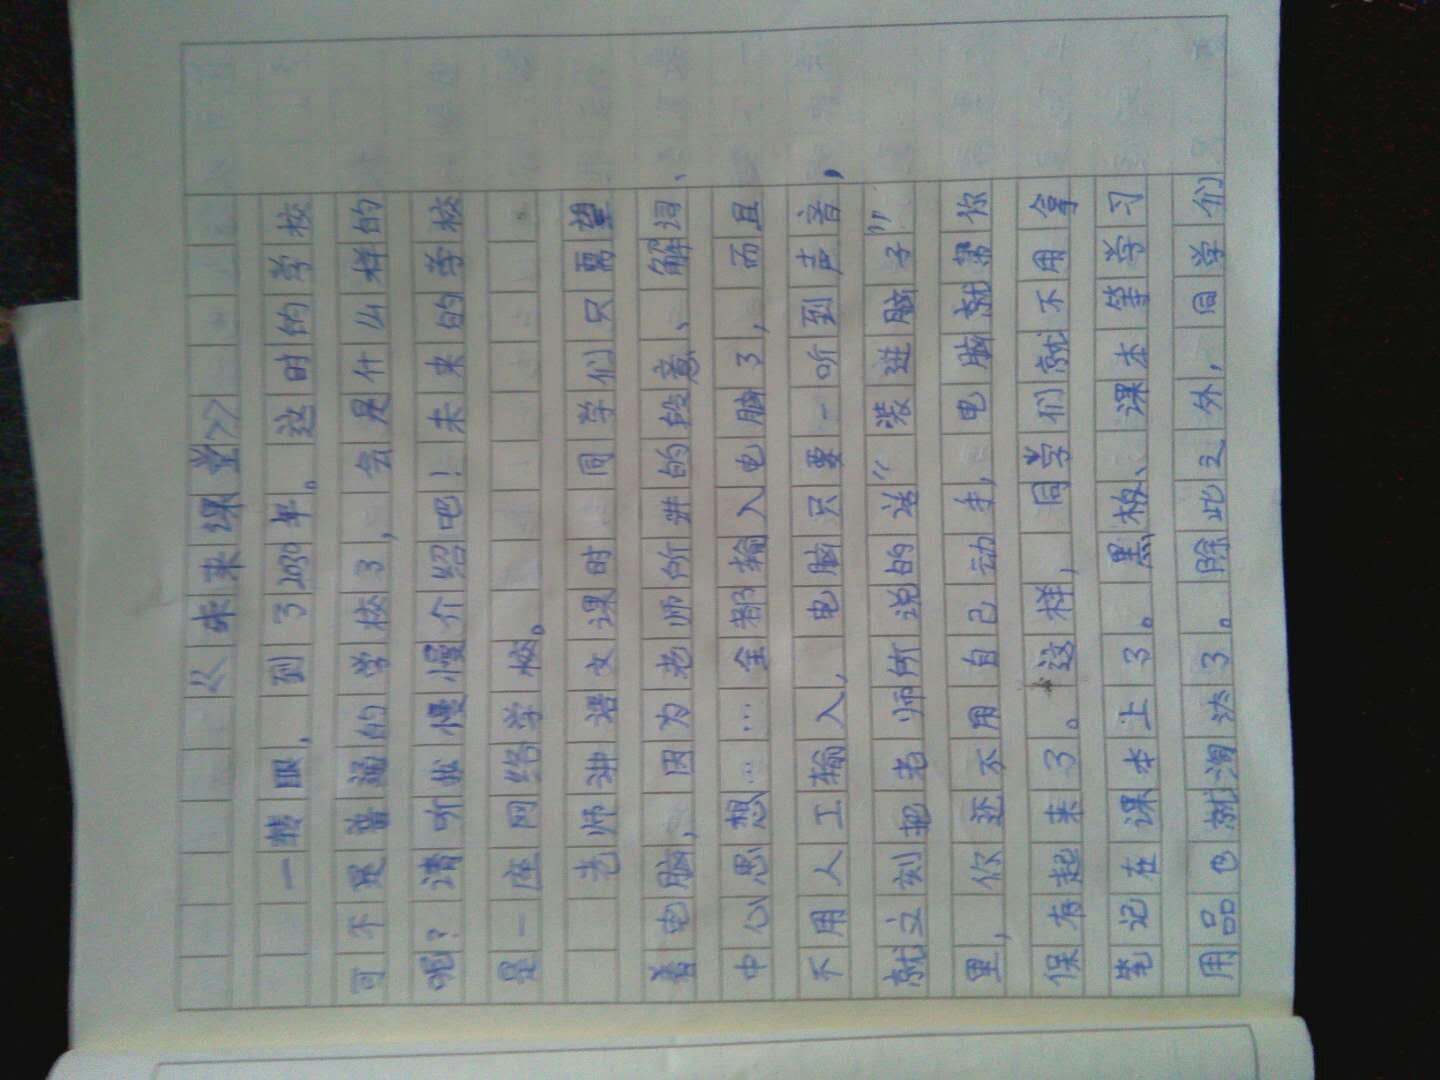 《未来课堂》
一转眼,到了2030年。这时的学校
可不是普通的学校了,会是什么样的
呢?请听我慢慢介绍吧!未来的学校
是一座网络学校。
老师讲语文课时同学们只需望
着电脑,因为老师所讲的段意、解词、
中心思想……全都输入电脑了,而且
不用人工输入,电脑只要一听到声音,
就立刻把老师所说的话“装进脑子”
里,你还不用自己动手,电脑就帮你
保存起来了。这样,同学们就不用拿
笔记在课本上了。黑板、课本等学习
用品也就淘汰了。除此之外,同学们